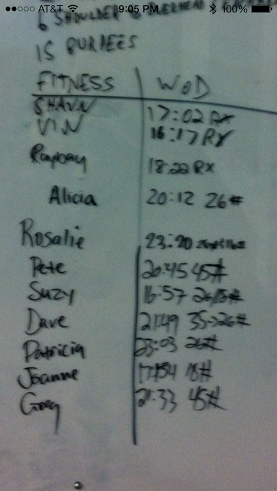 AT&T 9:05 PM 100%
6 SHOULDER OVERHEAD
15 BURPEES
FITNESS WOD
SHAWN 17:02 RX
VIN 16:17 RX
Raybay 18:22 RX
Alicia 20:12 26#
Rosalie 23:20
Pete 20:45 45#
Suzy 16:57 26/18#
Dave 21:49 35->26#
Patricia 23:03 26#
Joanne 17:54 18#
Greg 21:33 45#